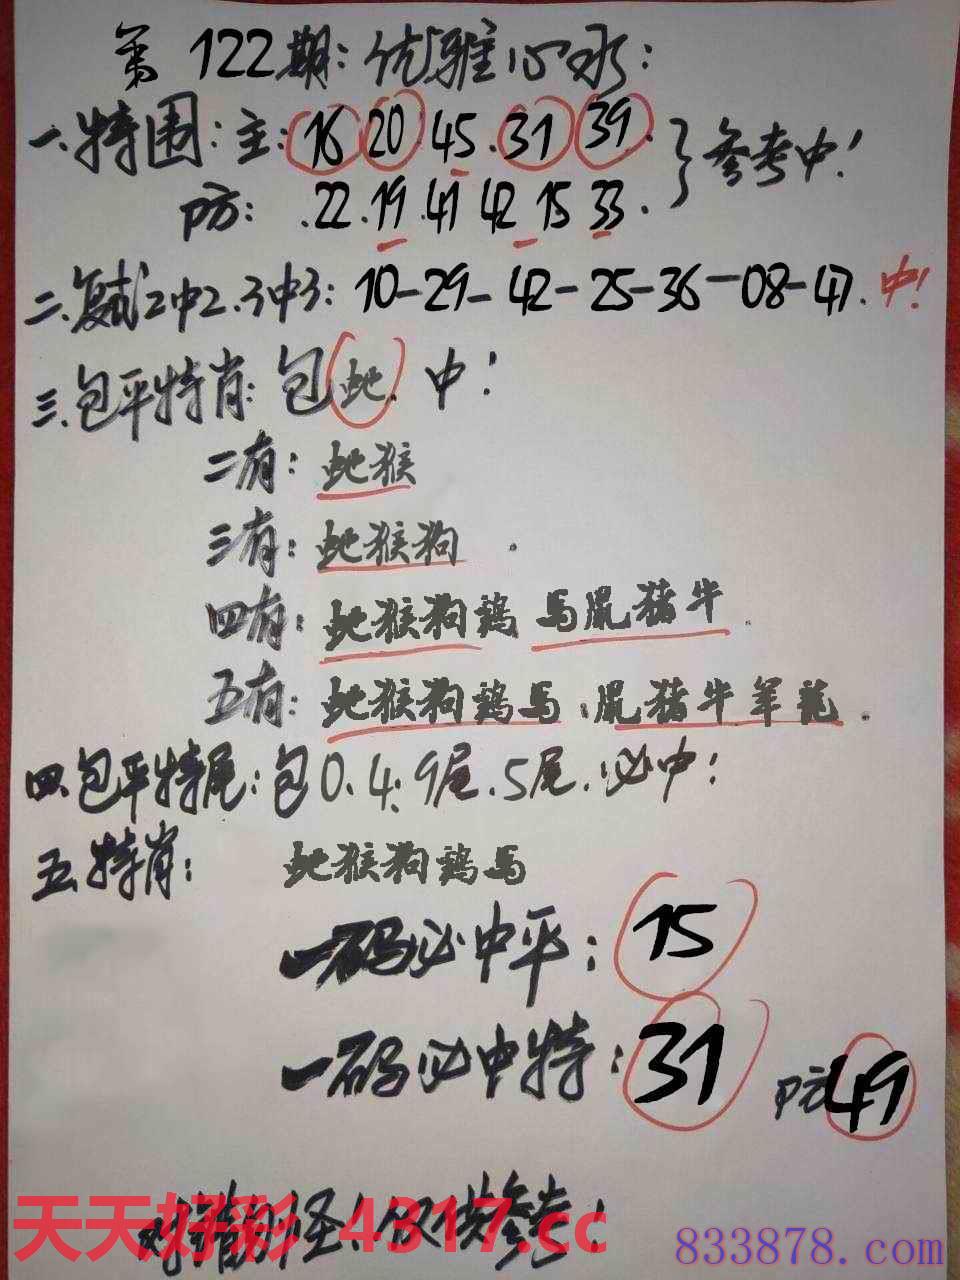 第122期:优雅心水:
一.特围:主:16 20 45.31 39.}参考中!
防:.22.19.41 42 15 33.
二.复式2中2.3中3:10-29-42-25-36-08-47.中!
三.包平特肖:包蛇.中!
二有:蛇猴
三有:蛇猴狗.
四有:蛇猴狗鸡 马鼠猪牛.
五有:蛇猴狗鸡马.鼠猪牛羊龙.
四.包平特尾:包0.4.9尾.5尾.必中!
五.特肖:蛇猴狗鸡马
一码必中平:15
一码必中特:31 防49
对错别怪!仅供参考!
天天好彩 4317.cc
833878.com